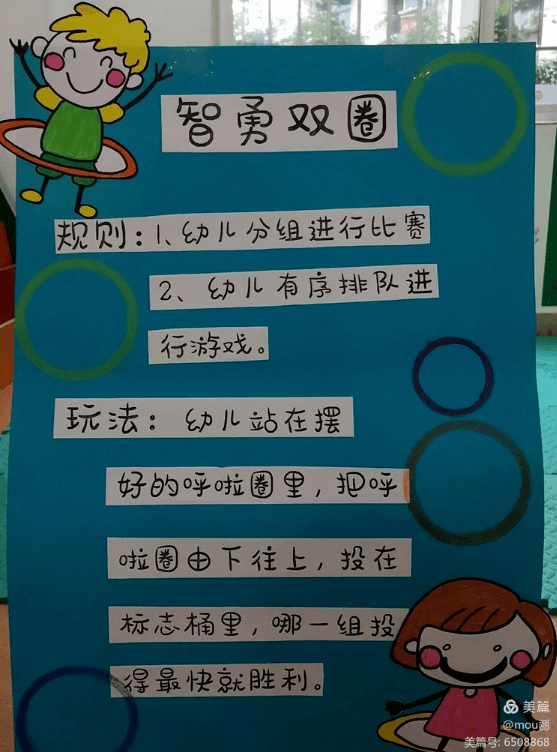 智勇双圈
规则：1、幼儿分组进行比赛
2、幼儿有序排队进
行游戏。
玩法：幼儿站在摆
好的呼啦圈里，把呼
啦圈由下往上，投在
标志桶里，哪一组投
得最快就胜利。
美篇
@mou丽
美篇号: 6508868